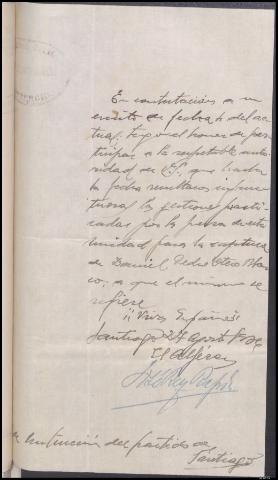 En contestación a su
escrito de fecha 4 del ac
tual, tengo el honor de par
ticipar a la respetable auto
ridad de V.S. que hasta
la fecha resultaron infruc
tuosas las gestiones practi
cadas por la fuerza de esta
unidad para la captura
de Daniel Pedro Otero Blan
co, a que el mismo se
refiere
¡¡Viva España!!
Santiago 27 Agosto
El Alférez
Instrucción del partido de
Santiago